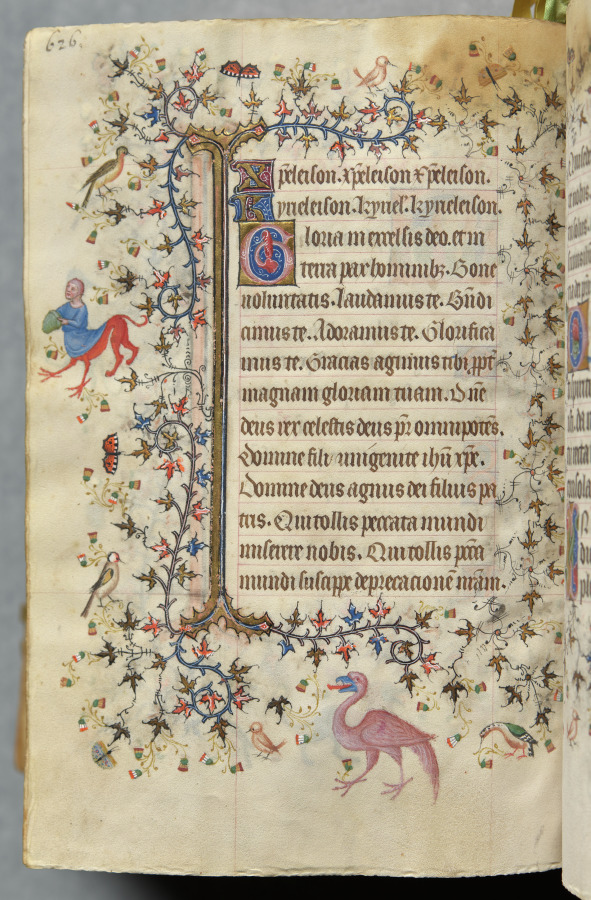 626.
Xpeleison. xpeleison xpeleison.
Kyrieleison. kyriel. kyrieleison.
Gloria in excelsis deo. et in
terra pax hominibz. Bone
uoluntatis. Laudamus te. Bñdi
cimus te. Adoramus te. Glorifica
mus te. Gracias agimus tibi ppt̄
magnam gloriam tuam. Dñe
deus rex celestis deus pr̄ omnipotēs.
Domine fili unigenite ihū xp̄e.
Domine deus agnus dei filius pa
tris. Qui tollis peccata mundi
miserere nobis. Qui tollis pc̄ca
mundi suscipe deprecacionē nr̄am.